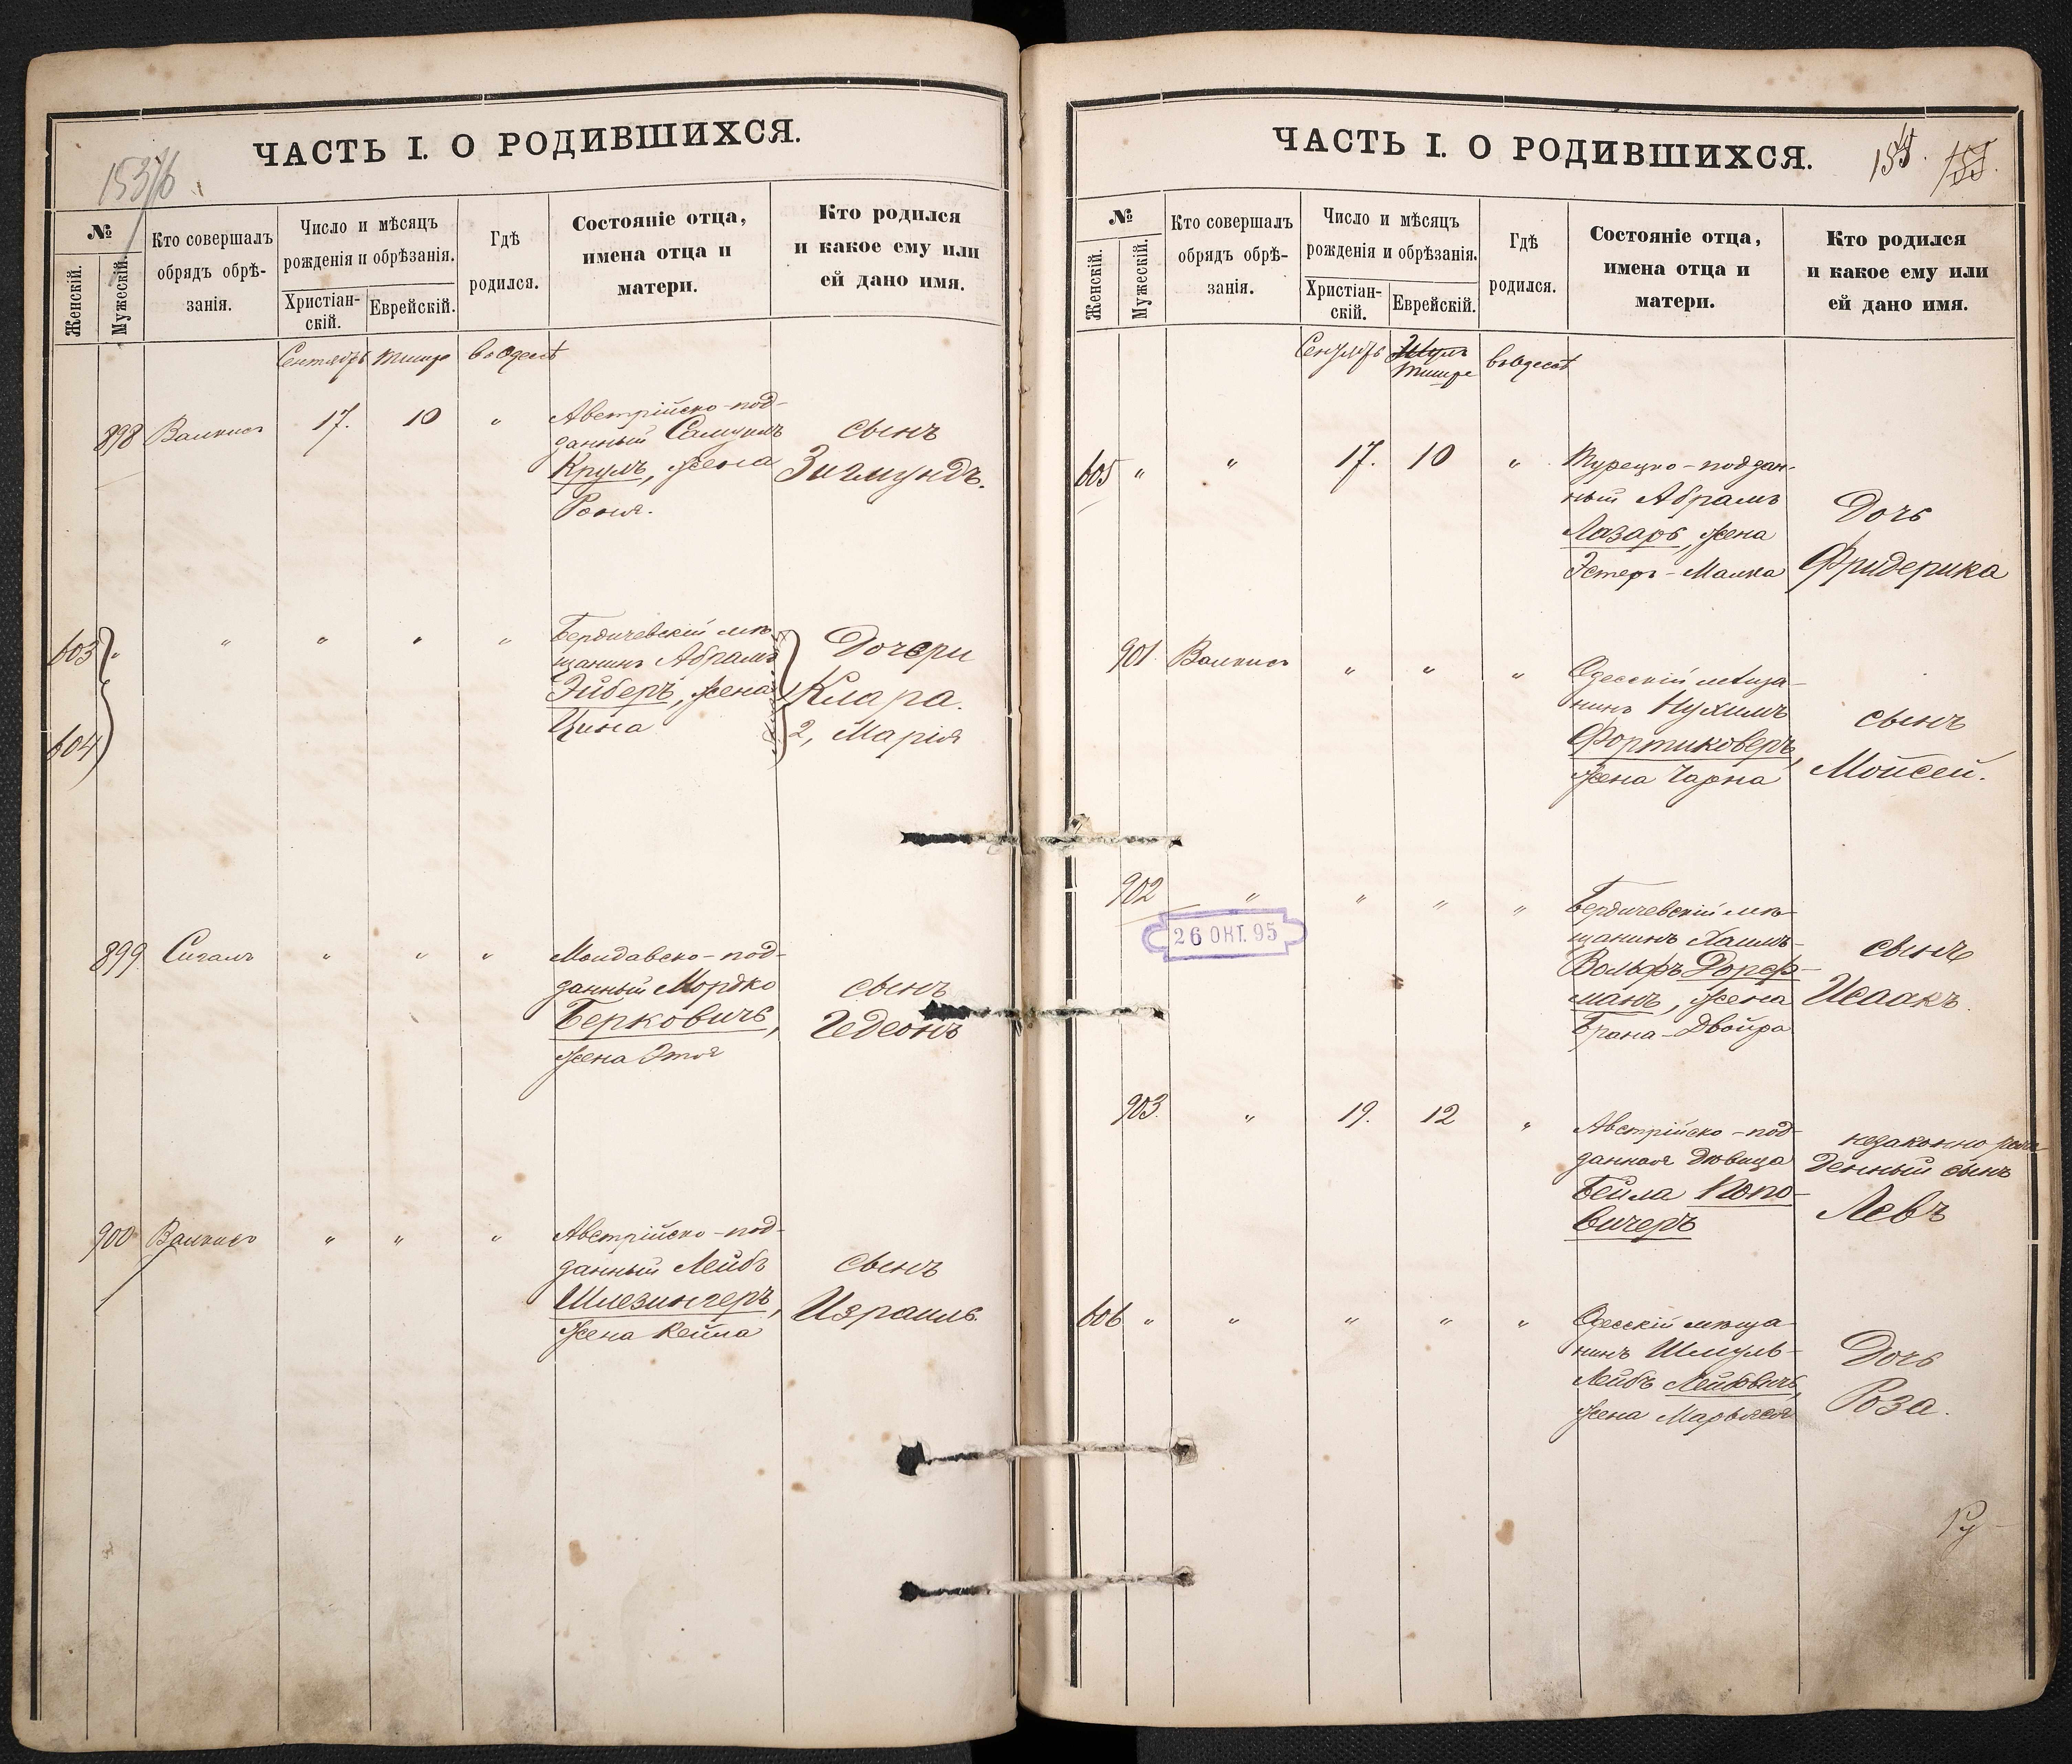 ЧАСТЬ I. О РОДИВШИХСЯ.
№
Женскій.
Мужескій.
Кто совершалъ
обрядъ обрѣ-
занія.
Число и мѣсяцъ
рожденія и обрѣзанія.
Христіан-
скій.
Еврейскій.
Гдѣ
родился.
Состояніе отца,
имена отца и
матери.
Кто родился
и какое ему или
ей дано имя.
Сентябрь Тишре въ Одессѣ
898 17. 10 „
Австрійско-под-
данный Самуилъ
Круль, жена
Рохля.
сынъ
Зигмундъ.
603 „ „ „ „ „
604
Бердичевскій мѣ-
щанинъ Абрамъ
Эйберъ, жена
Цина
Дочери
Клара.
2, Марія
899 Сигалъ „ „ „
Молдавско-под-
данный Мордко
Берковичъ,
жена Этля
сынъ
Гедеонъ
900 „ „ „
Австрійско-под-
данный Лейбъ
Шлезингеръ,
жена Кейла
сынъ
Израиль
ЧАСТЬ I. О РОДИВШИХСЯ.
№
Женскій.
Мужескій.
Кто совершалъ
обрядъ обрѣ-
занія.
Число и мѣсяцъ
рожденія и обрѣзанія.
Христіан-
скій.
Еврейскій.
Гдѣ
родился.
Состояніе отца,
имена отца и
матери.
Кто родился
и какое ему или
ей дано имя.
Сентябрь Тишре въ Одессѣ
605 „ „ 17. 10 „
Турецко-поддан-
ный Абрамъ
Лазарь, жена
Эстеръ-Малка
Дочь
Фридерика
901 „ „ „
Одесскій мѣща-
нинъ Нухимъ
Фортиковеръ,
жена Чарна
сынъ
Мойсей.
902 „ „ „ „
26 ОКТ. 95
Бердичевскій мѣ-
щанинъ Хаимъ-
Вольфъ Дорф-
манъ, жена
Брана-Двойра
сынъ
Исаакъ
903. „ 19. 12 „
Австрійско-под-
данная дѣвица
Бейла Копо-
вичеръ
незаконно рож-
денный сынъ
Левъ
606 „ „ „ „ „
Одесскій мѣща-
нинъ Шмуль-
Лейбъ Лейбовичъ,
жена Марьяся
Дочь
Роза.